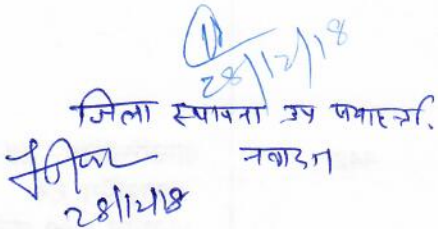 28/12/18
जिला स्थापना उप समाहर्ता,
नवादा।
28/12/18